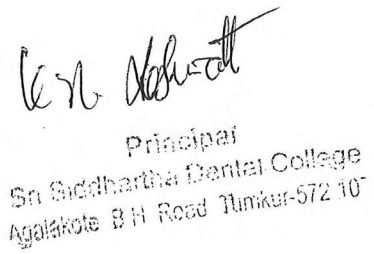 Principal
Sri Siddhartha Dental College
Agalakote B H Road Tumkur-572 10